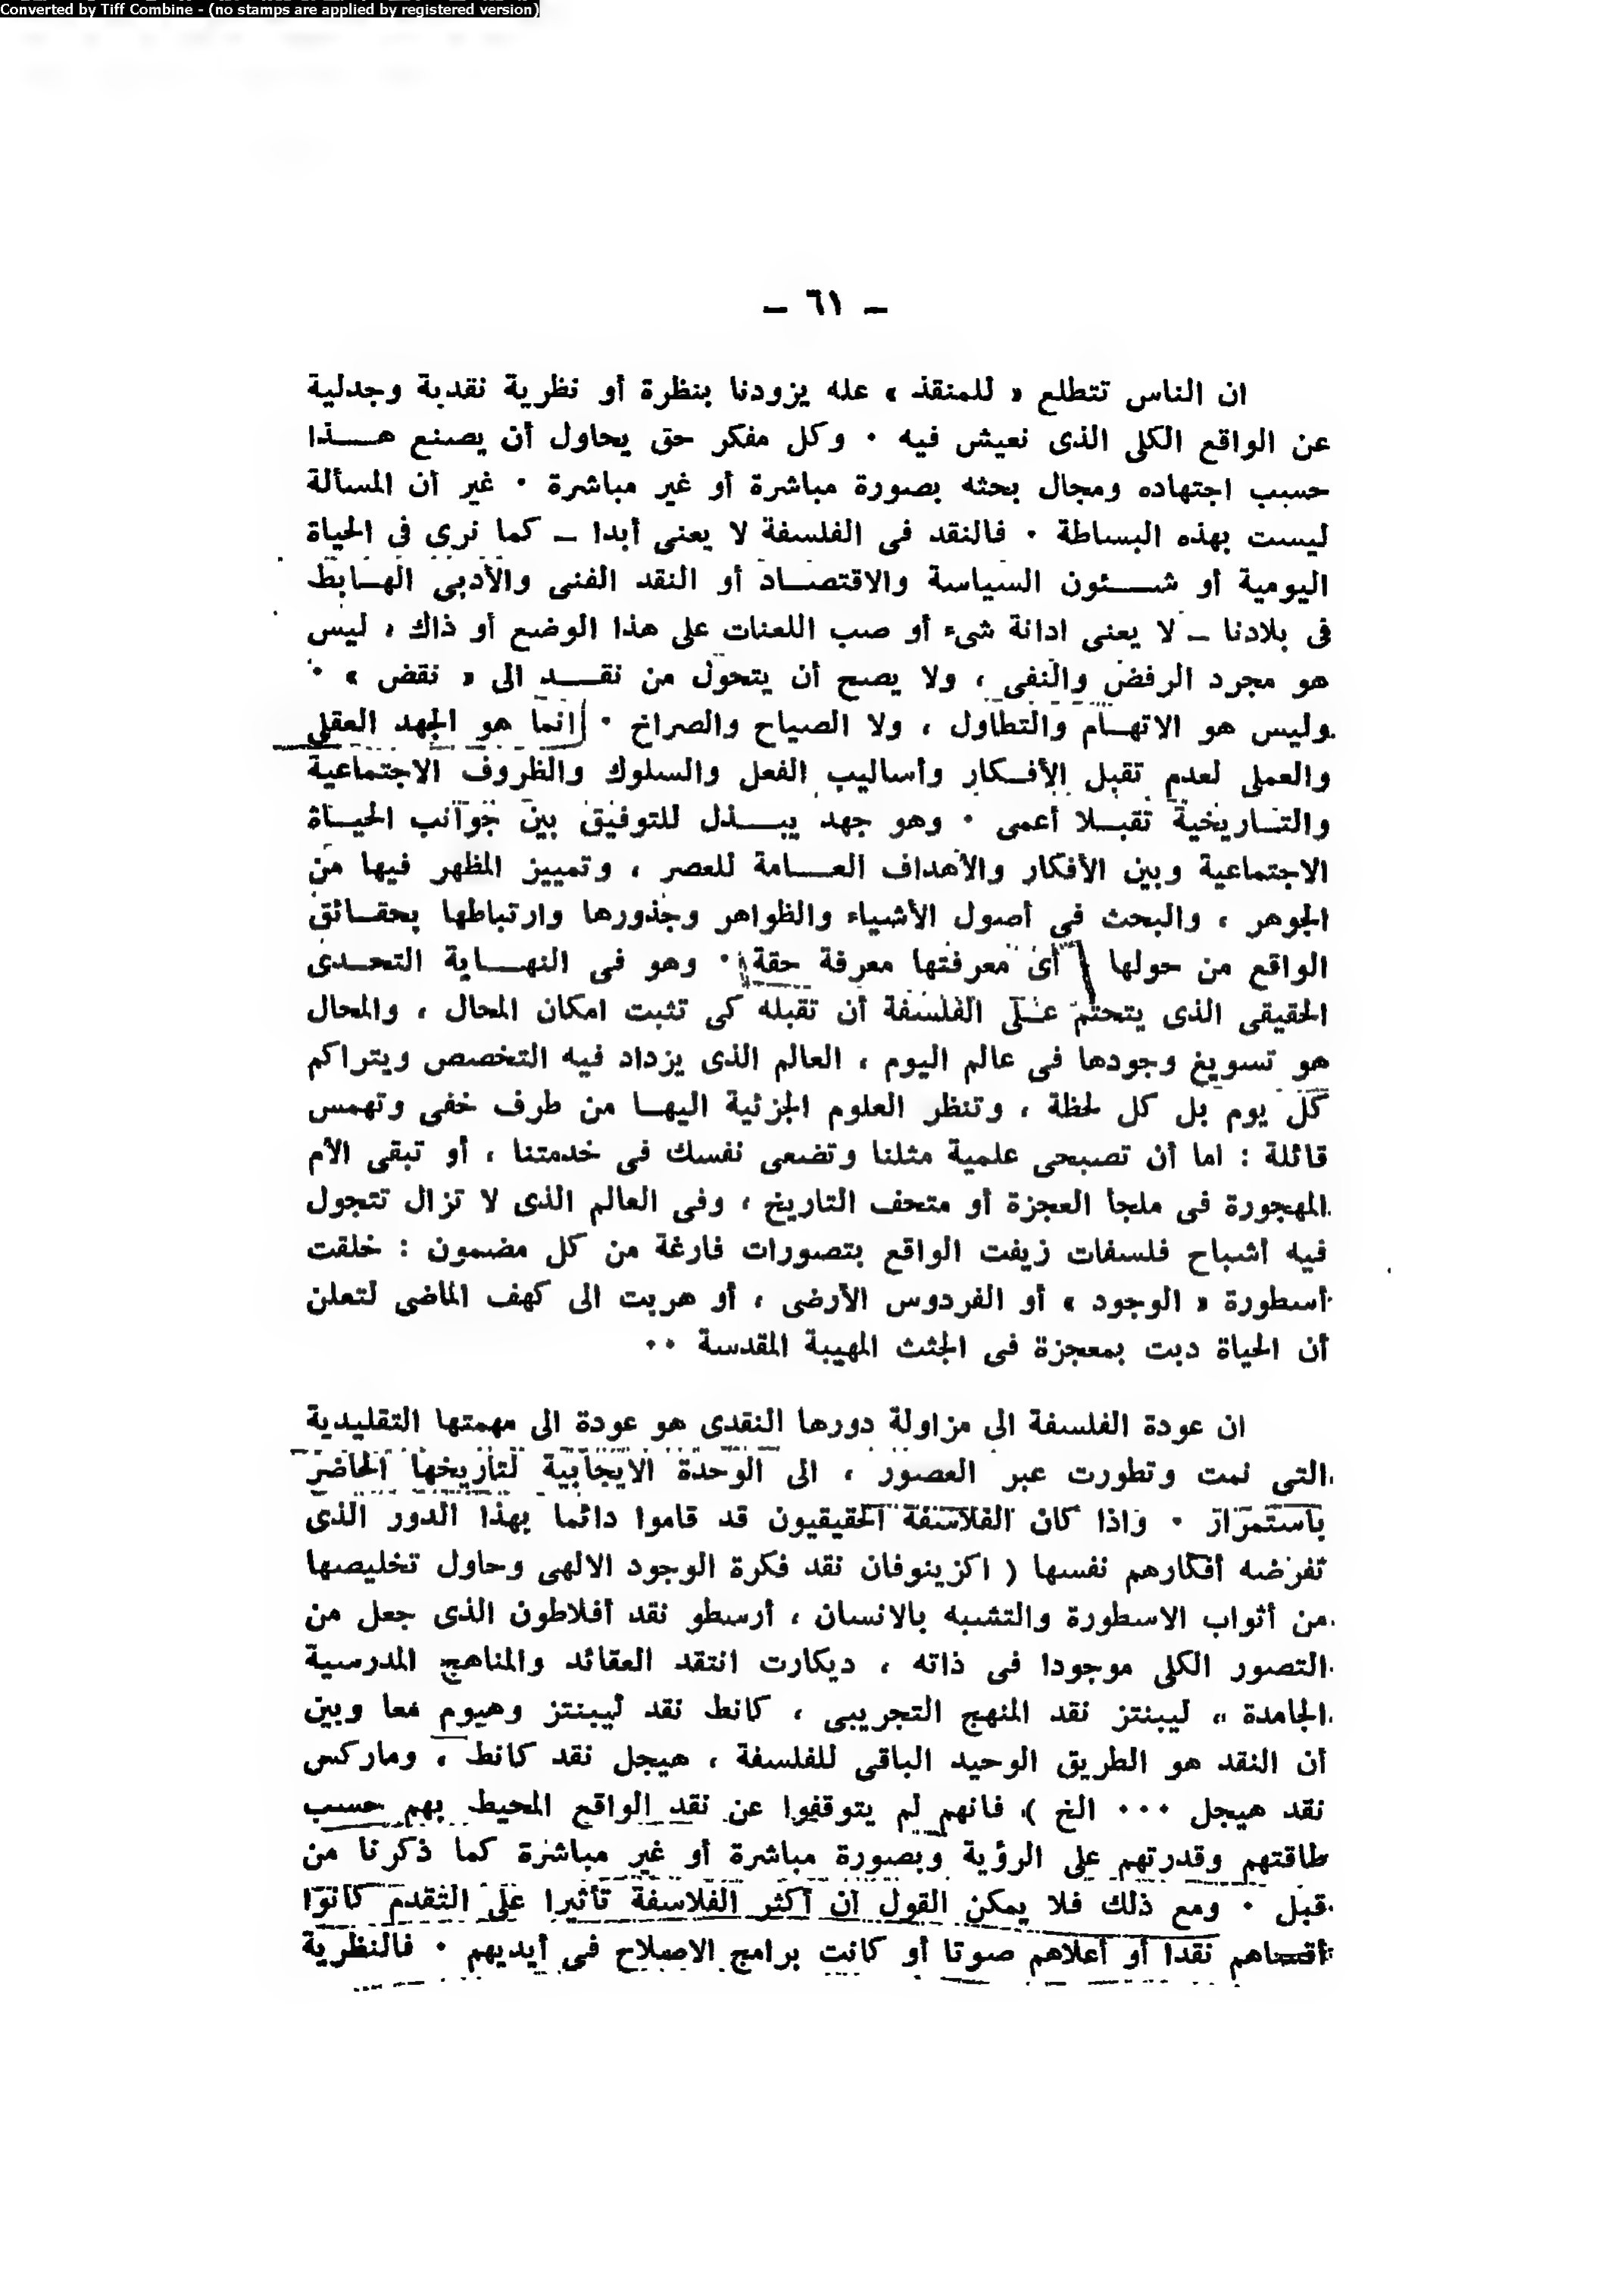 Converted by Tiff Combine - (no stamps are applied by registered version)
— ٦١ —
ان الناس تتطلع « للمنقذ » عله يزودنا بنظرة أو نظرية نقدية وجدلية
عن الواقع الكلى الذى نعيش فيه ٠ وكل مفكر حق يحاول أن يصنع هـــذا
حسب اجتهاده ومجال بحثه بصورة مباشرة أو غير مباشرة ٠ غير أن المسألة
ليست بهذه البساطة ٠ فالنقد فى الفلسفة لا يعنى أبدا — كما نرى فى الحياة
اليومية أو شـــئون السياسة والاقتصــاد أو النقد الفنى والأدبى الهــابط
فى بلادنا — لا يعنى ادانة شىء أو صب اللعنات على هذا الوضع أو ذاك ، ليس
هو مجرد الرفض والنفى ، ولا يصح أن يتحول من نقـــد الى « نقض » ٠
وليس هو الاتهــام والتطاول ، ولا الصياح والصراخ ٠ انما هو الجهد العقلى
والعملى لعدم تقبل الأفــكار وأساليب الفعل والسلوك والظروف الاجتماعية
والتــاريخية تقبــلا أعمى ٠ وهو جهد يبـــذل للتوفيق بين جوانب الحيــاة
الاجتماعية وبين الأفكار والأهداف العـــامة للعصر ، وتمييز المظهر فيها من
الجوهر ، والبحث فى أصول الأشياء والظواهر وجذورها وارتباطها بحقــائق
الواقع من حولها ( أى معرفتها معرفة حقة ) ٠ وهو فى النهـــاية التحــدى
الحقيقى الذى يتحتم عــلى الفلسفة أن تقبله كى تثبت امكان المحال ، والمحال
هو تسويغ وجودها فى عالم اليوم ، العالم الذى يزداد فيه التخصص ويتراكم
كل يوم بل كل لحظة ، وتنظر العلوم الجزئية اليهــا من طرف خفى وتهمس
قائلة : اما أن تصبحى علمية مثلنا وتضعى نفسك فى خدمتنا ، أو تبقى الأم
المهجورة فى ملجأ العجزة أو متحف التاريخ ، وفى العالم الذى لا تزال تتجول
فيه أشباح فلسفات زيفت الواقع بتصورات فارغة من كل مضمون : خلقت
أسطورة « الوجود » أو الفردوس الأرضى ، أو هربت الى كهف الماضى لتعلن
أن الحياة دبت بمعجزة فى الجثث المهيبة المقدسة ٠٠
ان عودة الفلسفة الى مزاولة دورها النقدى هو عودة الى مهمتها التقليدية
التى نمت وتطورت عبر العصور ، الى الوحدة الايجابية لتاريخها الحاضر
باستمرار ٠ واذا كان الفلاسفة الحقيقيون قد قاموا دائما بهذا الدور الذى
تفرضه أفكارهم نفسها ( اكزينوفان نقد فكرة الوجود الالهى وحاول تخليصها
من أثواب الاسطورة والتشبه بالانسان ، أرسطو نقد أفلاطون الذى جعل من
التصور الكلى موجودا فى ذاته ، ديكارت انتقد العقائد والمناهج المدرسية
الجامدة ، ليبنتز نقد المنهج التجريبى ، كانط نقد ليبنتز وهيوم معا وبين
أن النقد هو الطريق الوحيد الباقى للفلسفة ، هيجل نقد كانط ، وماركس
نقد هيجل ٠٠٠ الخ ) فانهم لم يتوقفوا عن نقد الواقع المحيط بهم حسب
طاقتهم وقدرتهم على الرؤية وبصورة مباشرة أو غير مباشرة كما ذكرنا من
قبل ٠ ومع ذلك فلا يمكن القول ان أكثر الفلاسفة تأثيرا على التقدم كانوا
أقساهم نقدا أو أعلاهم صوتا أو كانت برامج الاصلاح فى أيديهم ٠ فالنظرية